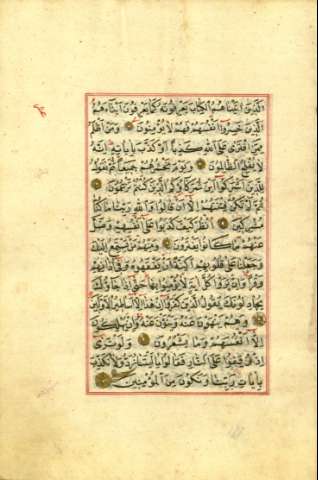 الذين اتيناهم الكتاب يعرفونه كما يعرفون ابناءهم
الذين خسروا انفسهم فهم لا يؤمنون ومن اظلم
ممن افترى على الله كذبا او كذب باياته انه
لا يفلح الظالمون ويوم نحشرهم جميعا ثم نقول
للذين اشركوا اين شركاؤكم الذين كنتم تزعمون
ثم لم تكن فتنتهم الا ان قالوا والله ربنا ما كنا
مشركين انظر كيف كذبوا على انفسهم وضل
عنهم ما كانوا يفترون ومنهم من يستمع اليك
وجعلنا على قلوبهم اكنة ان يفقهوه وفي اذانهم
وقرا وان يروا كل اية لا يؤمنوا بها حتى اذا جاؤك
يجادلونك يقول الذين كفروا ان هذا الا اساطير الاولين
وهم ينهون عنه وينؤن عنه وان يهلكون
الا انفسهم وما يشعرون ولو ترى
اذ وقفوا على النار فقالوا يا ليتنا نرد ولا نكذب
بايات ربنا ونكون من المؤمنين